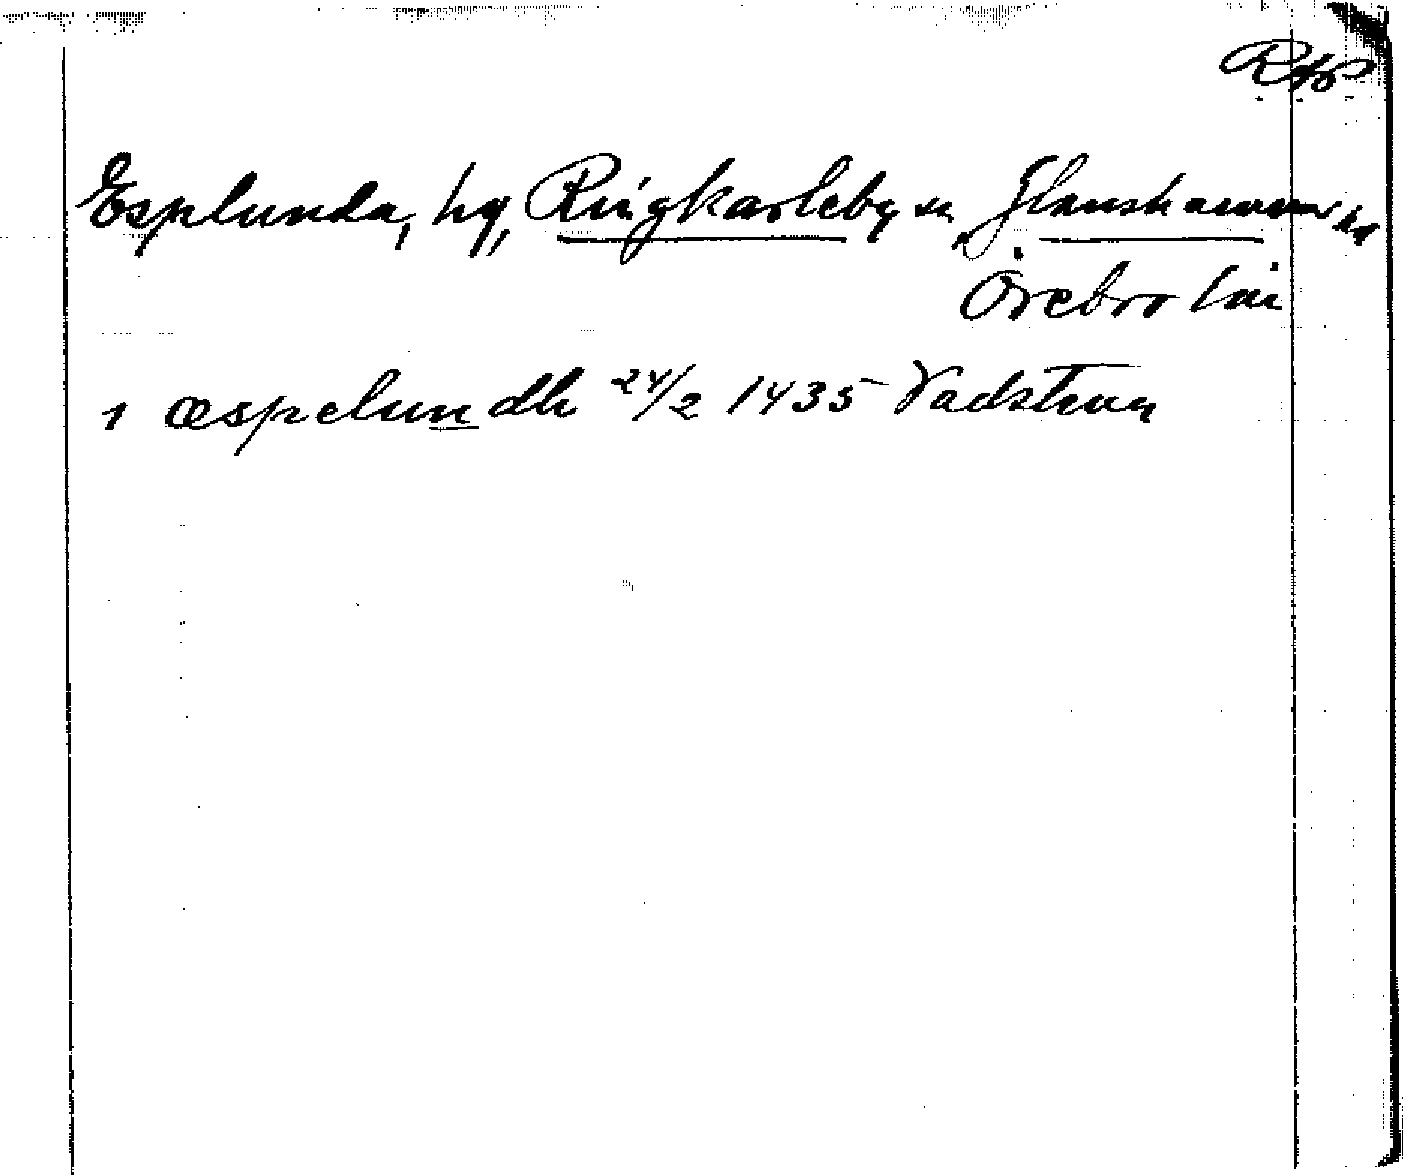 RAp
Esplunda, hg, Ringkarleby sn, Glanshammar hd
Örebro län
1 æspelundh 24/2 1435 Vadstena